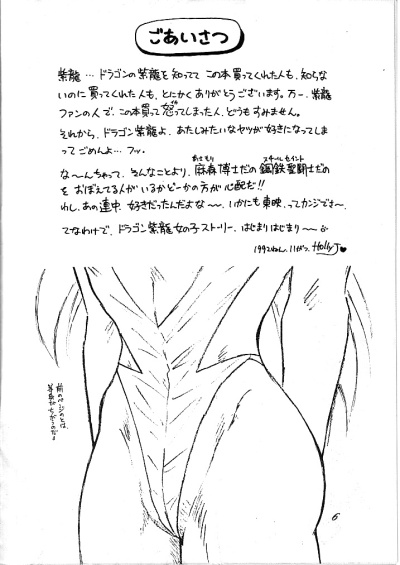 ごあいさつ
紫龍…ドラゴンの紫龍を知ってて この本買ってくれた人も、知らな
いのに買ってくれた人も、とにかくありがとうございます。万一、紫龍
ファンの人で、この本買って怒ってしまった人、どうもすみません。
それから、ドラゴン紫龍よ、あたしみたいなヤツが好きになってしま
ってごめんよ…フッ。
な〜んちゃって、そんなことより、麻森博士だの鋼鉄聖闘士だの
あさもり
スチールセイント
をおぼえてる人がいるかどーかの方が心配だ!!
わし、あの連中、好きだったんだよな〜〜、いかにも東映、ってカンジでさ〜、
てなわけで、ドラゴン紫龍女の子ストーリー、はじまりはじまり〜〜
1992ねん、11がつ、Holly J♥
前のページのとは、
6